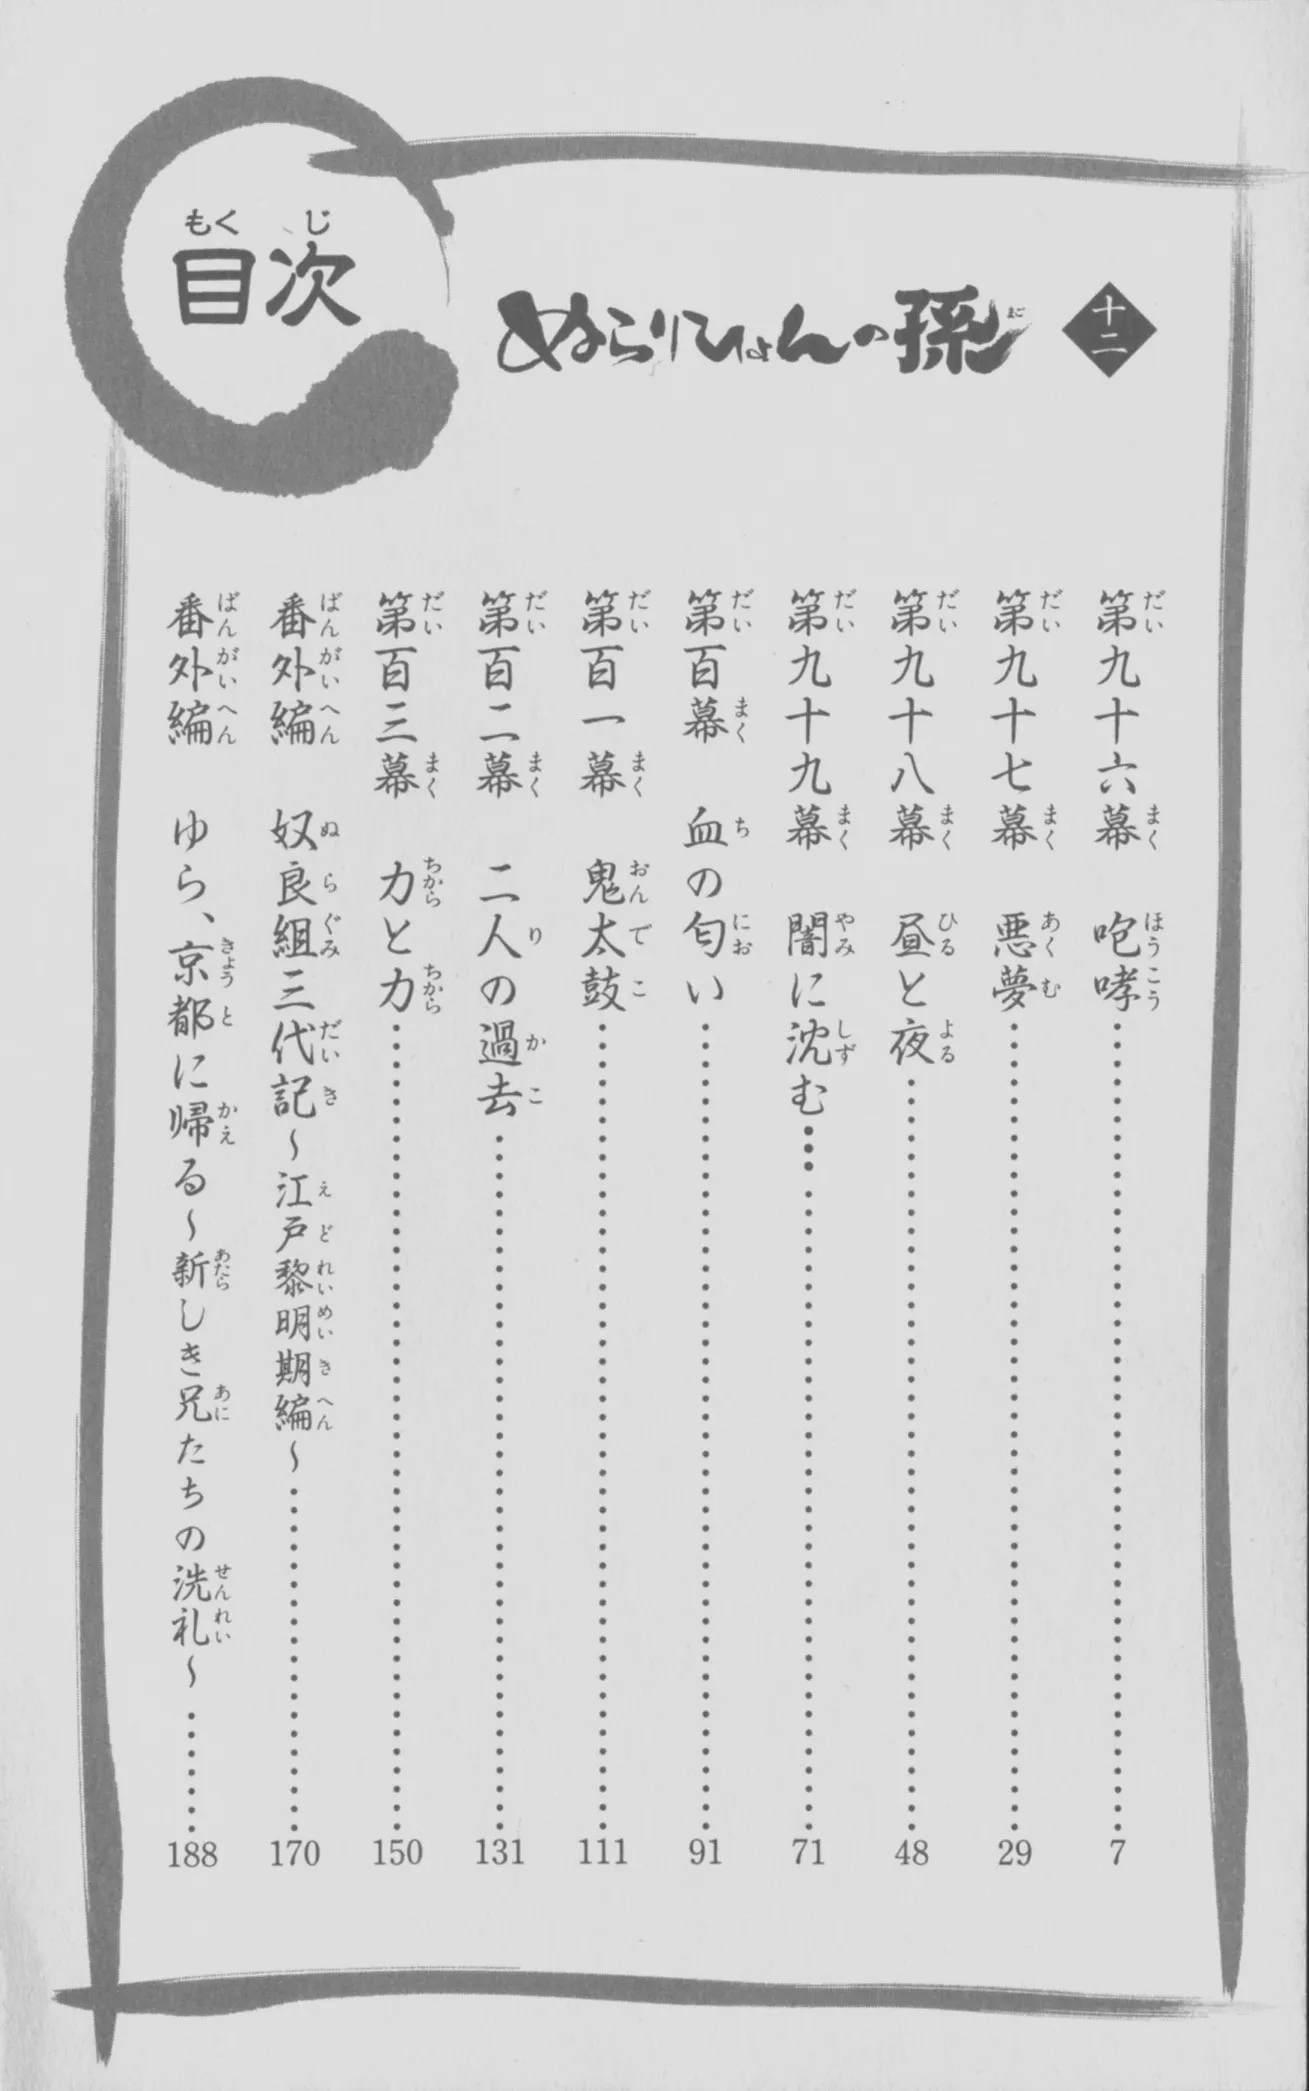 目次
ぬらりひょんの孫 十二
第九十六幕 咆哮……7
第九十七幕 悪夢……29
第九十八幕 昼と夜……48
第九十九幕 闇に沈む……71
第百幕 血の匂い……91
第百一幕 鬼太鼓……111
第百二幕 二人の過去……131
第百三幕 力と力……150
番外編 奴良組三代記～江戸黎明期編～……170
番外編 ゆら、京都に帰る～新しき兄たちの洗礼～……188